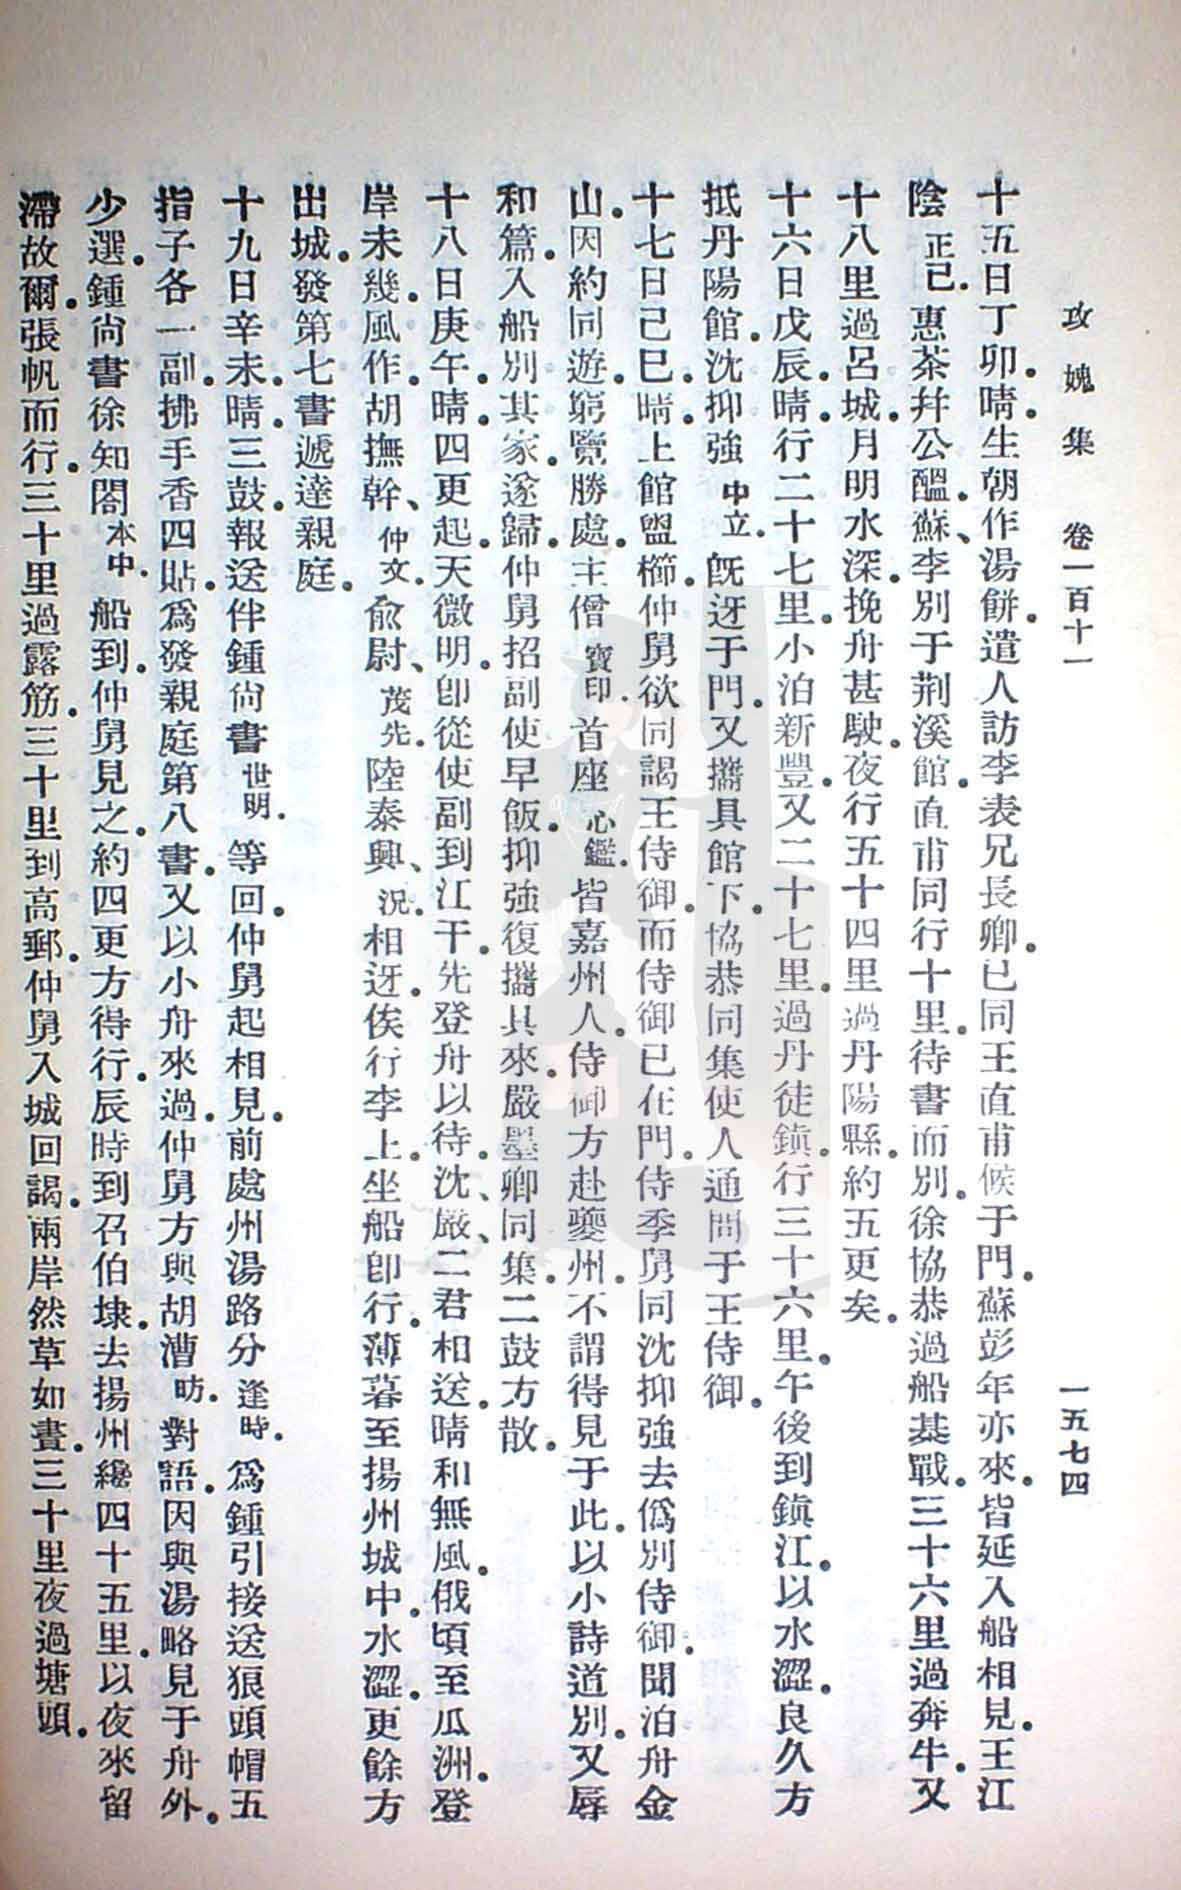 攻媿集　卷一百十一　一五七四
十五日丁卯。晴。生朝作湯餅。遣人訪李表兄長卿。已同王直甫候于門。蘇彭年亦來。皆延入船相見。王江
陰正己。惠茶幷公醞。蘇、李別于荆溪館。直甫同行十里。待書而別。徐協恭過船棊戰。三十六里過奔牛。又
十八里過呂城。月明水深。挽舟甚駛。夜行五十四里。過丹陽縣。約五更矣。
十六日戊辰。晴。行二十七里。小泊新豐。又二十七里。過丹徒鎮。行三十六里。午後到鎮江。以水澀。良久方
抵丹陽館。沈抑強中立。旣迓于門。又攜具館下。協恭同集。使人通問于王侍御。
十七日己巳。晴。上館盥櫛。仲舅欲同謁王侍御。而侍御已在門。侍季舅同沈抑強去。爲別侍御。聞泊舟金
山。因約同遊。窮覽勝處。主僧寶印。首座心鑑。皆嘉州人。侍御方赴夔州。不謂得見于此。以小詩道別。又辱
和篇。入船別其家。遂歸。仲舅招副使早飯。抑強復攜具來。嚴墨卿同集。二鼓方散。
十八日庚午。晴。四更起。天微明。卽從使副到江干。先登舟以待。沈、嚴二君相送。晴和無風。俄頃至瓜洲。登
岸未幾。風作。胡撫幹、仲文。俞尉、茂先。陸泰興、況。相迓。俟行李上。坐船卽行。薄暮至揚州城中。水澀。更餘方
出城。發第七書遞達親庭。
十九日辛未。晴。三鼓。報送伴鍾尙書世明。等回。仲舅起相見。前處州湯路分逢時。爲鍾引接。送狼頭帽五
指子各一副。拂手香四貼。爲發親庭第八書。又以小舟來過。仲舅方與胡漕昉。對語。因與湯略見于舟外。
少選。鍾尙書徐知閤本中。船到。仲舅見之。約四更方得行。辰時到召伯埭。去揚州纔四十五里。以夜來留
滯故爾。張帆而行。三十里過露筋。三十里到高郵。仲舅入城回謁。兩岸然草如晝。三十里夜過塘頭。